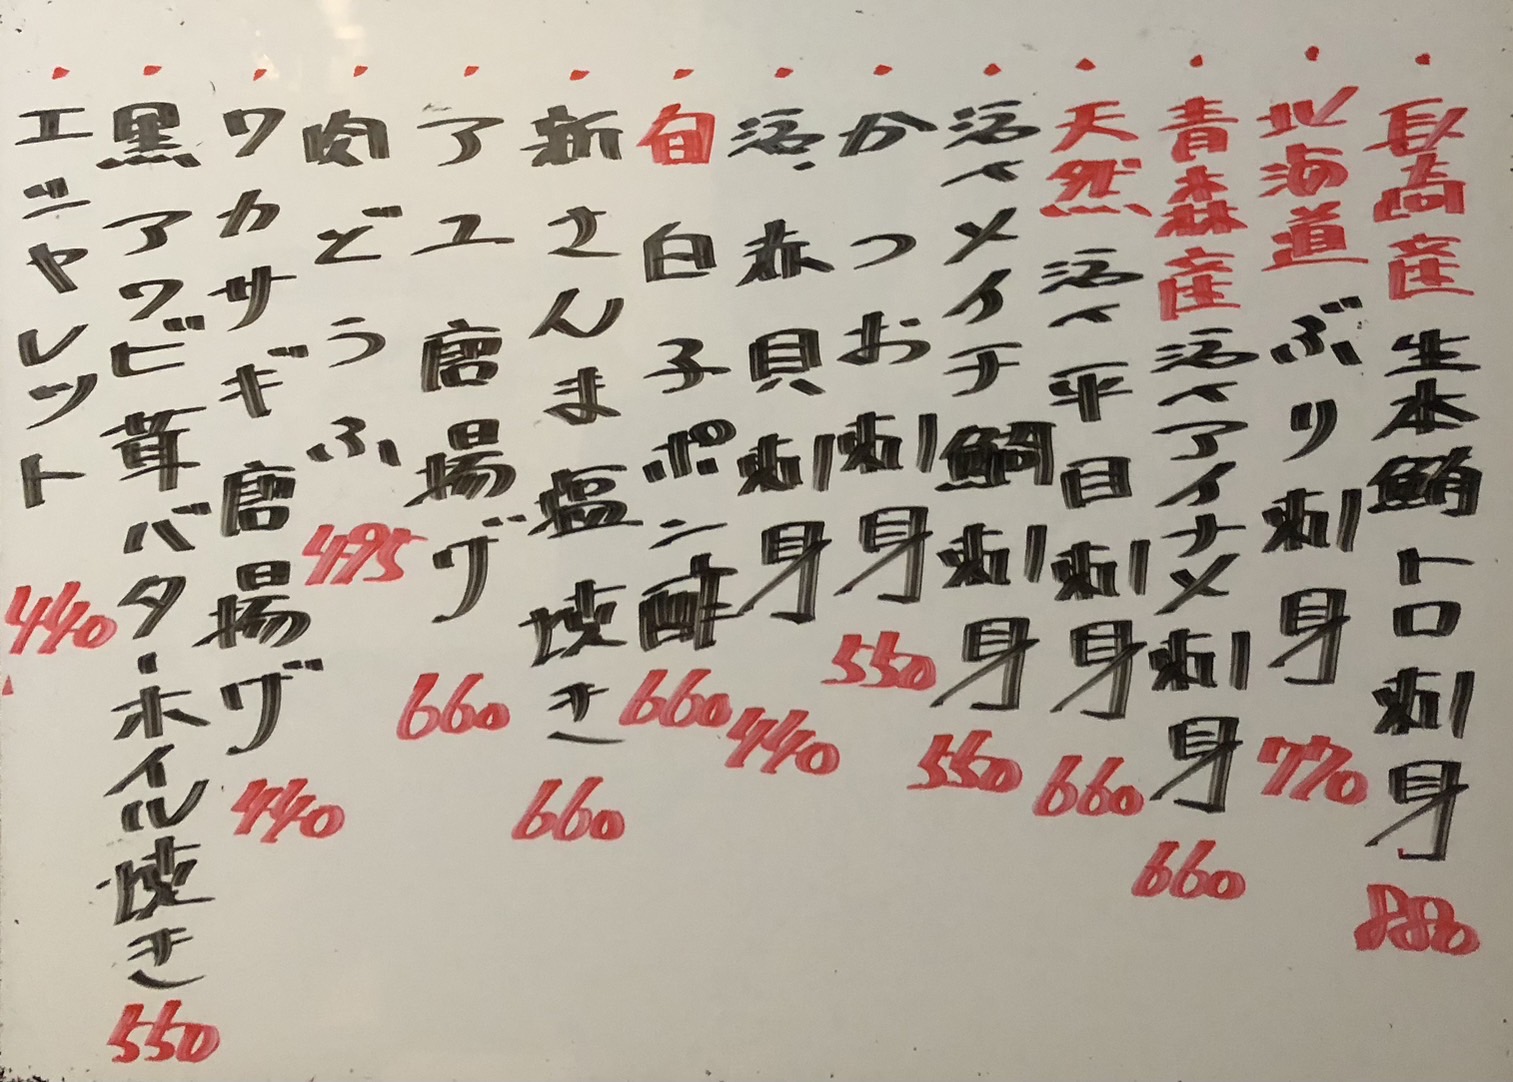 ・産 生本鮪トロ刺身 880
・北海道 ぶり刺身 770
・青森産 活〆アイナメ刺身 660
・天然 活〆平目刺身 660
・活〆メイチ鯛刺身 550
・かつお刺身 550
・活赤貝刺身 440
・旬 白子ポン酢 660
・新さんま塩焼き 660
・アユ唐揚げ 660
・肉どうふ 495
・ワカサギ唐揚げ 440
・黒アワビ茸バタ・ホイル焼き 550
・エシャレット 440